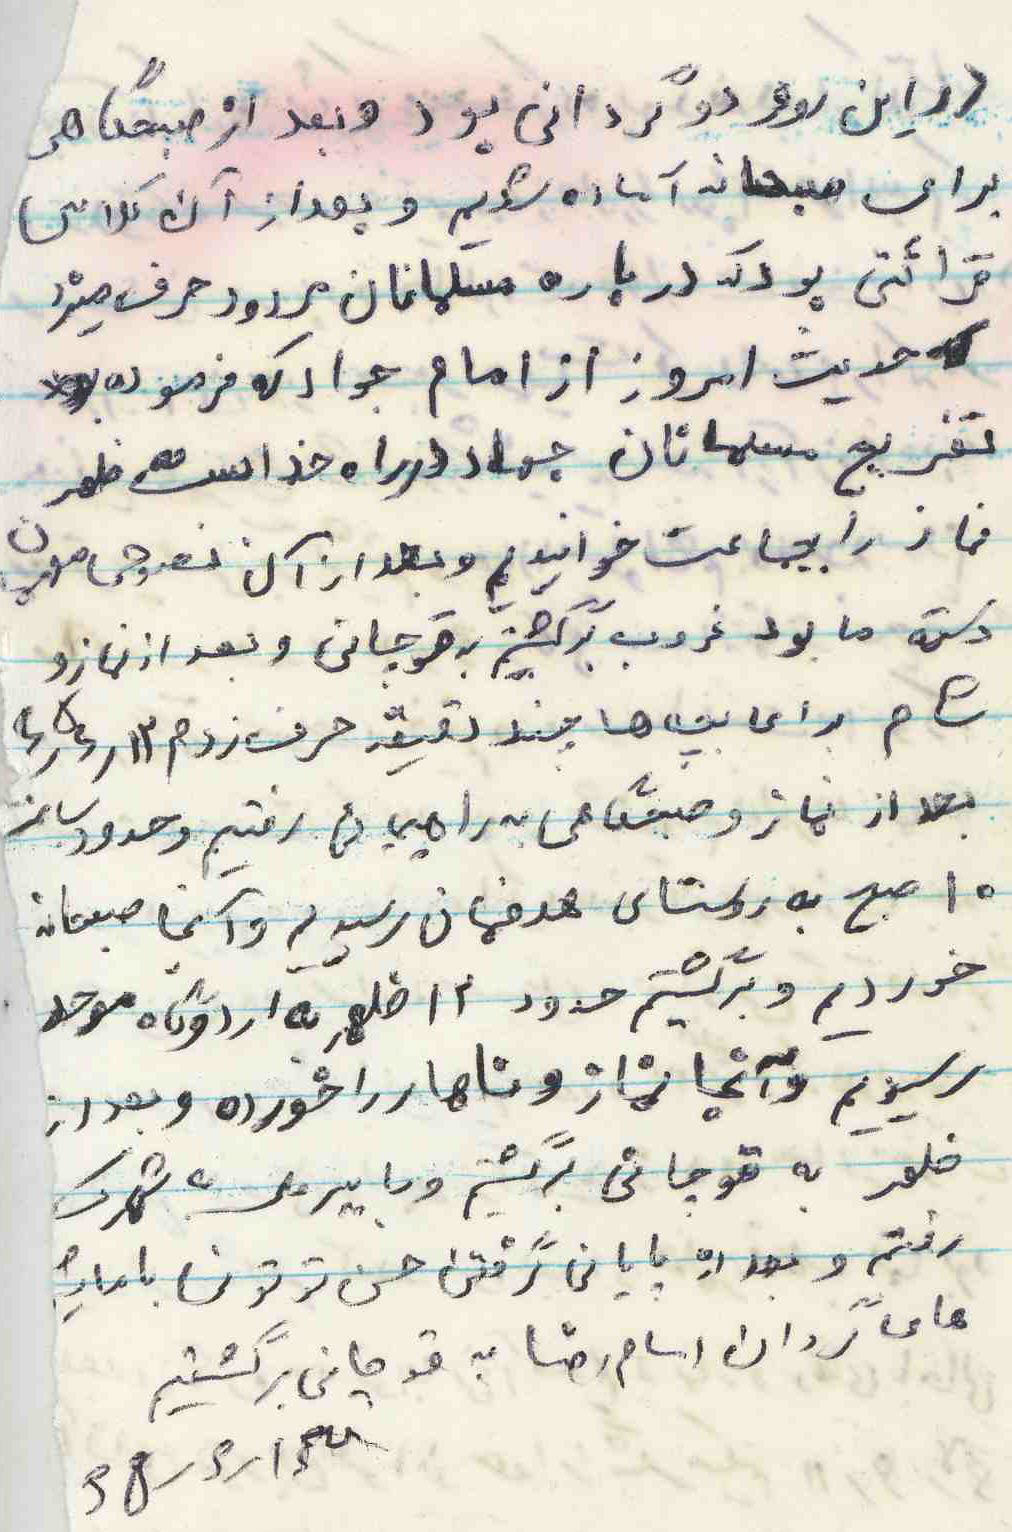 در این روز دو گردانی بود و بعد از صبحگاهی
برای صبحانه آماده شدیم و بعد از آن کلاس
قرائتی بود که درباره مسلمانان مردود حرف میزد
که حدیث امروز از امام جواد که فرموده بود
تفریح مسلمانان جهاد در راه خدا است ظهر
نماز را بجماعت خواندیم و بعد از آن
دسته ما بود غروب برگشتیم به قوجانی و بعد از نماز و
شام برای بچه ها چند دقیقه حرف زدم
بعد از نماز و صبحگاهی به راهپیمائی رفتیم و حدود ساعت
۱۰ صبح به روستای هدفمان رسیدیم و آنجا صبحانه
خوردیم و برگشتیم حدود ۱۲ ظهر به اردوگاه موحد
رسیدیم و آنجا نماز و ناهار را خورده و بعد از
ظهر به قوجانی برگشتیم و با به شهرک
رفتم و بعد از پایانی گرفتن حسن
های گردان امام رضا به قوچانی برگشتیم